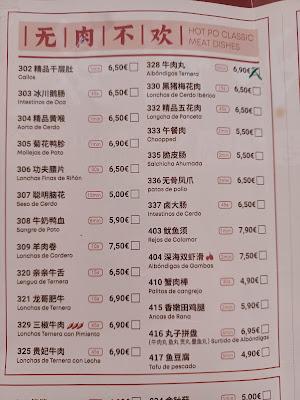 无肉不欢
HOT PO CLASSIC
MEAT DISHES
302 精品千层肚 6,50€
Callos
303 冰川鹅肠 6,50€
Intestinos de Oca
304 精品黄喉 6,50€
Aorta de Cerdo
305 菊花鸭胗 6,90€
Mollejas de Pato
306 功夫腰片 6,50€
Lonchas Finas de Riñón
307 聪明脑花 5,00€
Seso de Cerdo
308 牛奶鸭血 5,90€
Sangre de Pato
309 羊肉卷 7,50€
Lonchas de Cordero
320 亲亲牛舌 6,50€
Lengua de Ternera
321 龙哥肥牛 6,50€
Lonchas de Ternera
329 三椒牛肉 6,50€
Lonchas Ternera con Pimiento
325 贵妃牛肉 6,50€
Lonchas de Ternera con Leche
328 牛肉丸 6,90€
Albóndigas Ternera
330 黑猪梅花肉 6,50€
Lonchas de Cerdo Ibérico
332 精品五花肉 6,50€
Longcha de Panceta
333 午餐肉 5,50€
Choopped
335 脆皮肠 5,50€
Salchicha Ahumada
336 无骨凤爪 6,50€
patas de pollo
337 卤大肠 6,50€
Intestinos de Cerdo
403 鱿鱼须 7,90€
Rejos de Calamar
404 深海双虾滑 7,50€
Albóndigas de Gambas
410 蟹肉棒 4,90€
Palitos de cangrejo
415 香嫩田鸡腿 5,90€
Ancas de Rana
416 丸子拼盘 6,95€
Surtido de Albóndigas
417 鱼豆腐 4,90€
Tofu de pescado